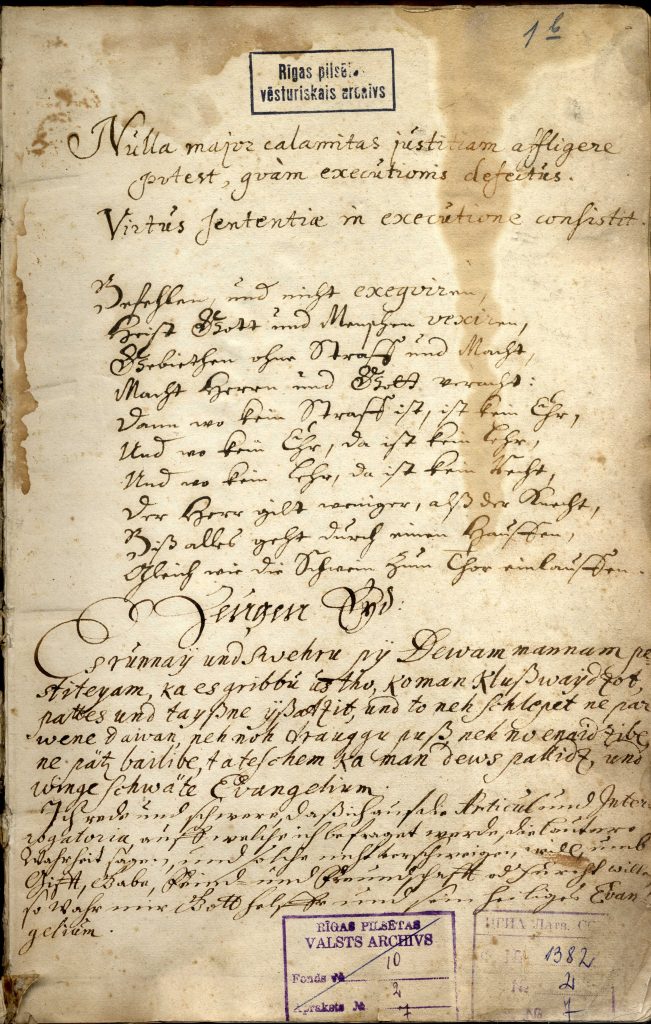 1 b
Rīgas pilsēt.
vēsturiskais arcnivs
Nulla major calamitas justitiam affligere
potest, qvàm executionis defectus.
Virtus sententiæ in executione consistit.
Befehlen, und nicht exeqviren,
Heist Gott und Menschen vexiren,
Gebiethen ohne Straff und Macht,
Macht Herren und Gott veracht:
Dann wo kein Straff ist, ist kein Ehr,
Und wo kein Ehr, da ist kein Lehr,
Und wo kein Lehr, da ist kein Recht,
Der Herr gilt weniger, alß der Knecht,
Biß alles geht durch einen Hauffen,
Gleich wie die Schwein zum Thor einlauffen.
Zeugen Eyd:
Es runnay und swehru py Dewam mannam pe
stiteyam, ka es gribbu us tho, ko man klußwaydzot,
pattes und tayßne und to neh schlepet ne par
wene dawan, neh noh drauggu puß neh no enaidzibe,
ne pätz bailibe, tateschem ka man dews pallidz, und
winge schwäte Evangelium.
Ich rede und schwere, daß ich auf die Articul und Inter
rogatoria, auf welche ich befraget werde, die lautere
Wahrheit sagen, und solche nicht verschweigen will, umb
Gifft, Gabe, Feind- und Freundschafft
so wahr mir Gott helffe und sein heiliges Evan
gelium.
RĪGAS PILSĒTAS
VALSTS ARCHIVS
10
Fonds №
2
Apraksts № 7
1382
№ 2
№ 7